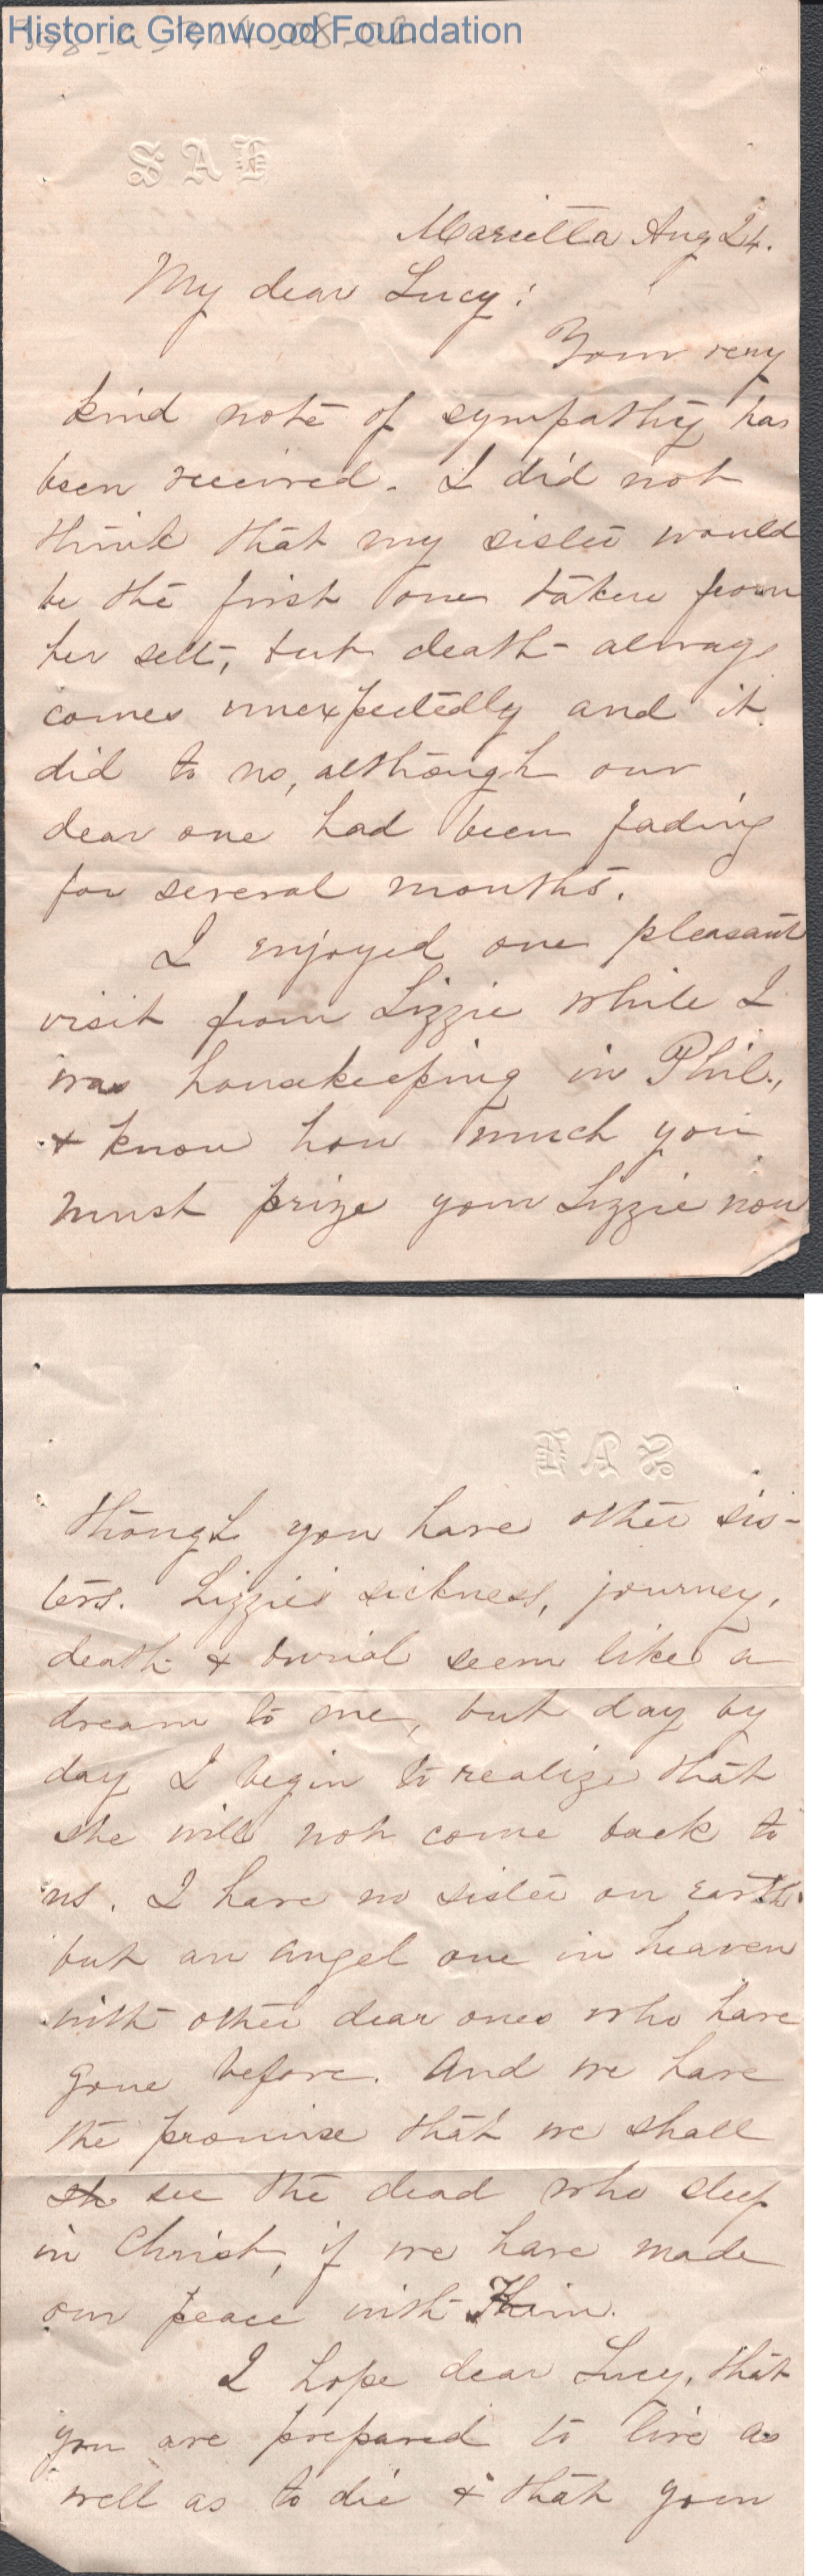 Historic Glenwood Foundation
SAB
Marietta Aug 24.
My dear Lucy:
Your very
kind note of sympathy has
been received. I did not
think that my sister would
be the first one taken from
her sett, but death always
comes unexpectedly and it
did to us, although our
dear one had been fading
for several months.
I enjoyed one pleasant
visit from Lizzie while I
was housekeeping in Phil.,
& know how much you
must prize your Lizzie now
though you have other sis-
ters. Lizzie's sickness, journey,
death & burial seem like a
dream to me, but day by
day I begin to realize that
she will not come back to
us. I have no sister on earth
but an angel one in heaven
with other dear ones who have
gone before. And we have
the promise that we shall
sh see the dead who sleep
in Christ, if we have made
our peace with Him.
I hope dear Lucy, that
you are prepared to live as
well as to die & that your